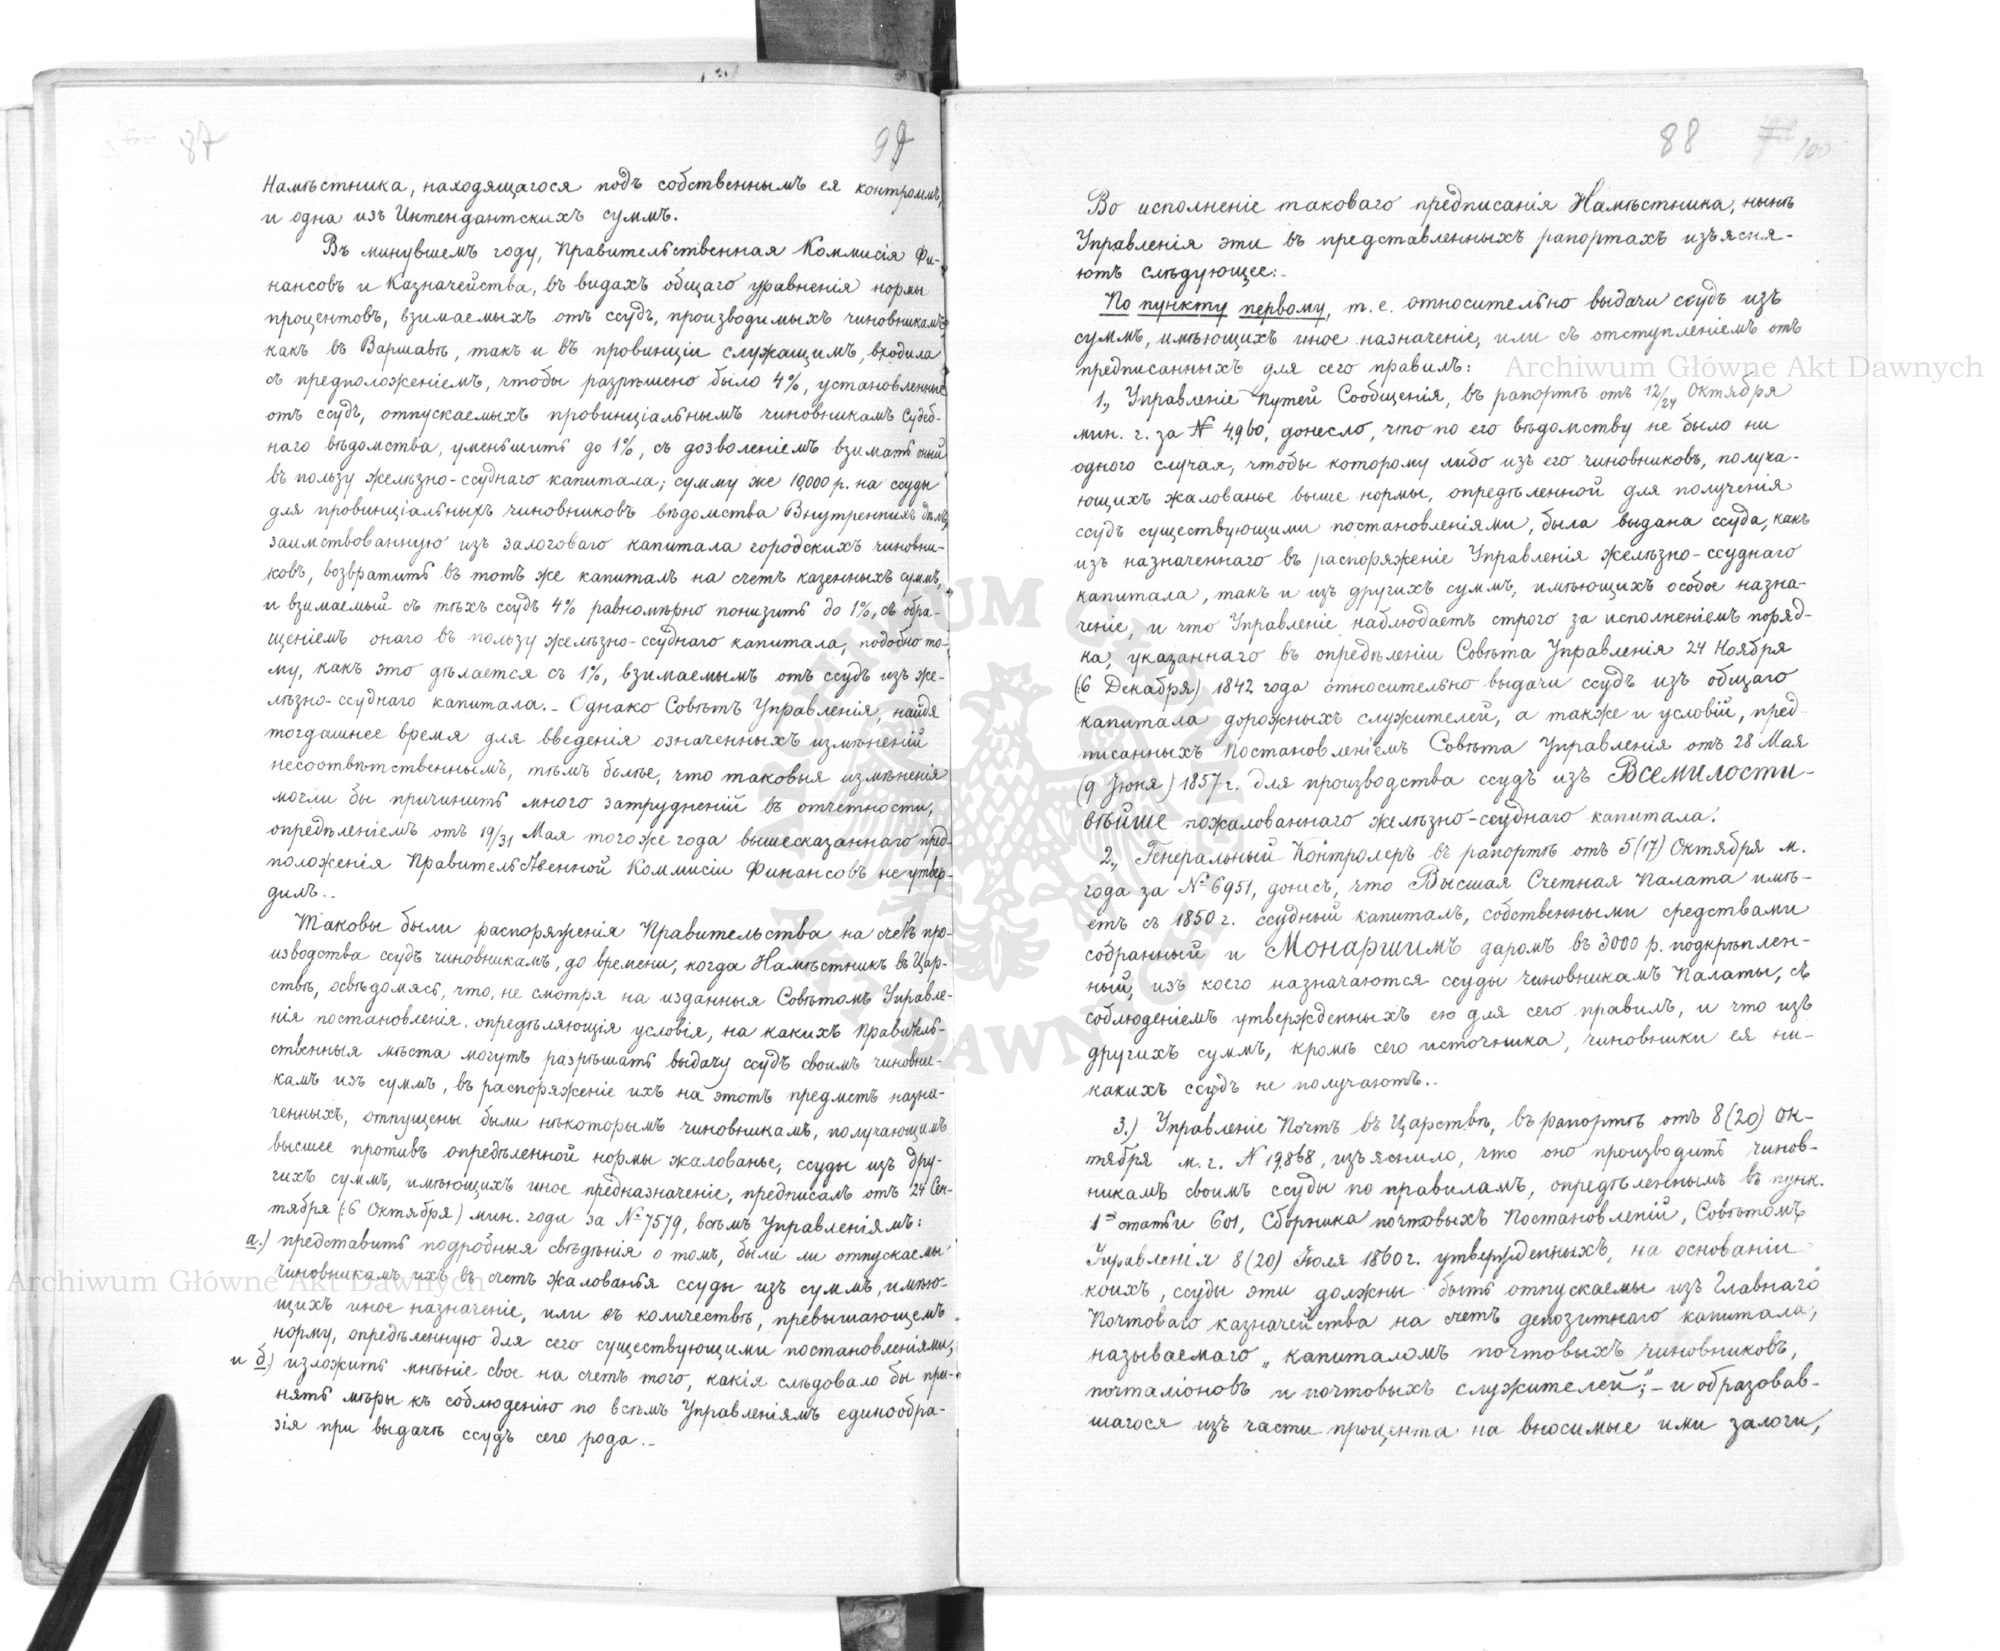 87
99
Намѣстника, находящагося подъ собственнымъ ея контролемъ,
и одна изъ Интендантскихъ суммъ.
Въ минувшемъ году, Правительственная Коммисія Фи-
нансовъ и Казначейства, въ видахъ общаго уравненія нормы
процентовъ, взимаемыхъ отъ ссудъ, производимыхъ чиновникамъ
какъ въ Варшавѣ, такъ и въ провинціи служащимъ, входила
съ предположеніемъ, чтобы разрѣшено было 4%, установленные
отъ ссудъ, отпускаемыхъ провинціальнымъ чиновникамъ Судеб-
наго вѣдомства, уменьшить до 1%, съ дозволеніемъ взимать оный
въ пользу желѣзно-ссуднаго капитала; сумму же 10,000 р. на ссуды
для провинціальныхъ чиновниковъ вѣдомства Внутреннихъ дѣлъ,
заимствованную изъ залоговаго капитала городскихъ чиновни-
ковъ, возвратить въ тотъ же капиталъ на счетъ казенныхъ суммъ,
и взимаемый съ тѣхъ ссудъ 4% равномѣрно понизить до 1%, съ обра-
щеніемъ онаго въ пользу желѣзно-ссуднаго капитала, подобно то-
му, какъ это дѣлается съ 1%, взимаемымъ отъ ссудъ изъ же-
лѣзно-ссуднаго капитала.- Однако Совѣтъ Управленія, найдя
тогдашнее время для введенія означенныхъ измѣненій
несоотвѣтственнымъ, тѣмъ болѣе, что таковыя измѣненія
могли бы причинить много затрудненій въ отчетности,
опредѣленіемъ отъ 19/31 Мая тогоже года вышесказаннаго пред-
положенія Правительственной Коммисіи Финансовъ не утвер-
дилъ.-
Таковы были распоряженія Правительства на счетъ про-
изводства ссудъ чиновникамъ, до времени, когда Намѣстникъ въ Цар-
ствѣ, освѣдомясь, что, не смотря на изданныя Совѣтомъ Управле-
нія постановленія, опредѣляющія условія, на какихъ Правитель-
ственныя мѣста могутъ разрѣшать выдачу ссудъ своимъ чиновни-
камъ изъ суммъ, въ распоряженіе ихъ на этотъ предметъ назна-
ченныхъ, отпущены были нѣкоторымъ чиновникамъ, получающимъ
высшее противъ опредѣленной нормы жалованье, ссуды изъ дру-
гихъ суммъ, имѣющихъ иное предназначеніе, предписалъ отъ 24 Сен-
тября (:6 Октября) мин. года за № 7579, всѣмъ Управленіямъ:
а.) представить подробныя свѣдѣнія о томъ, были ли отпускаемы
чиновникамъ ихъ въ счетъ жалованья ссуды изъ суммъ, имѣю-
щихъ иное назначеніе, или въ количествѣ, превышающемъ
норму, опредѣленную для сего существующими постановленіями,
и б.) изложить мнѣніе свое на счетъ того, какія слѣдовало бы при-
нять мѣры къ соблюденію по всѣмъ Управленіямъ единообра-
зія при выдачѣ ссудъ сего рода.-
88
100
Во исполненіе таковаго предписанія Намѣстника, нынѣ
Управленія эти въ представленныхъ рапортахъ изъясня-
ютъ слѣдующее:-
По пункту первому, т. е. относительно выдачи ссудъ изъ
суммъ, имѣющихъ иное назначеніе, или съ отступленіемъ отъ
предписанныхъ для сего правилъ:
1., Управленіе Путей Сообщенія, въ рапортѣ отъ 12/24 Октября
мин. г. за № 4,960, донесло, что по его вѣдомству не было ни
одного случая, чтобы которому либо изъ его чиновниковъ, получа-
ющихъ жалованье выше нормы, опредѣленной для полученія
ссудъ существующими постановленіями, была выдана ссуда, какъ
изъ назначеннаго въ распоряженіе Управленія желѣзно-ссуднаго
капитала, такъ и изъ другихъ суммъ, имѣющихъ особое назна-
ченіе, и что Управленіе наблюдаетъ строго за исполненіемъ поряд-
ка, указаннаго въ опредѣленіи Совѣта Управленія 24 Ноября
(:6 Декабря) 1842 года относительно выдачи ссудъ изъ общаго
капитала дорожныхъ служителей, а также и условій, пред-
писанныхъ постановленіемъ Совѣта Управленія отъ 28 Мая
(9 Іюня) 1857 г. для производства ссудъ изъ Всемилости-
вѣйше пожалованнаго желѣзно-ссуднаго капитала.
2., Генеральный Контролеръ въ рапортѣ отъ 5 (17) Октября м.
года за № 6951, донесъ, что Высшая Счетная Палата имѣ-
етъ съ 1850 г. ссудный капиталъ, собственными средствами
собранный и Монаршимъ даромъ въ 3000 р. подкрѣплен-
ный, изъ коего назначаются ссуды чиновникамъ Палаты, съ
соблюденіемъ утвержденныхъ ею для сего правилъ, и что изъ
другихъ суммъ, кромѣ сего источника, чиновники ея ни-
какихъ ссудъ не получаютъ.-
3.) Управленіе Почтъ въ Царствѣ, въ рапортѣ отъ 8 (20) Ок-
тября м. г. № 19,868, изъяснило, что оно производитъ чинов-
никамъ своимъ ссуды по правиламъ, опредѣленнымъ въ пунк.
1мъ статьи 601, Сборника почтовыхъ Постановленій, Совѣтомъ
Управленія 8 (20) Іюля 1860 г. утвержденныхъ, на основаніи
коихъ, ссуды эти должны быть отпускаемы изъ Главнаго
Почтоваго казначейства на счетъ депозитнаго капитала,
называемаго „капиталомъ почтовыхъ чиновниковъ,
почталіоновъ и почтовыхъ служителей;"- и образовав-
шагося изъ части процента на вносимые ими залоги,
Archiwum Główne Akt Dawnych
Archiwum Główne Akt Dawnych